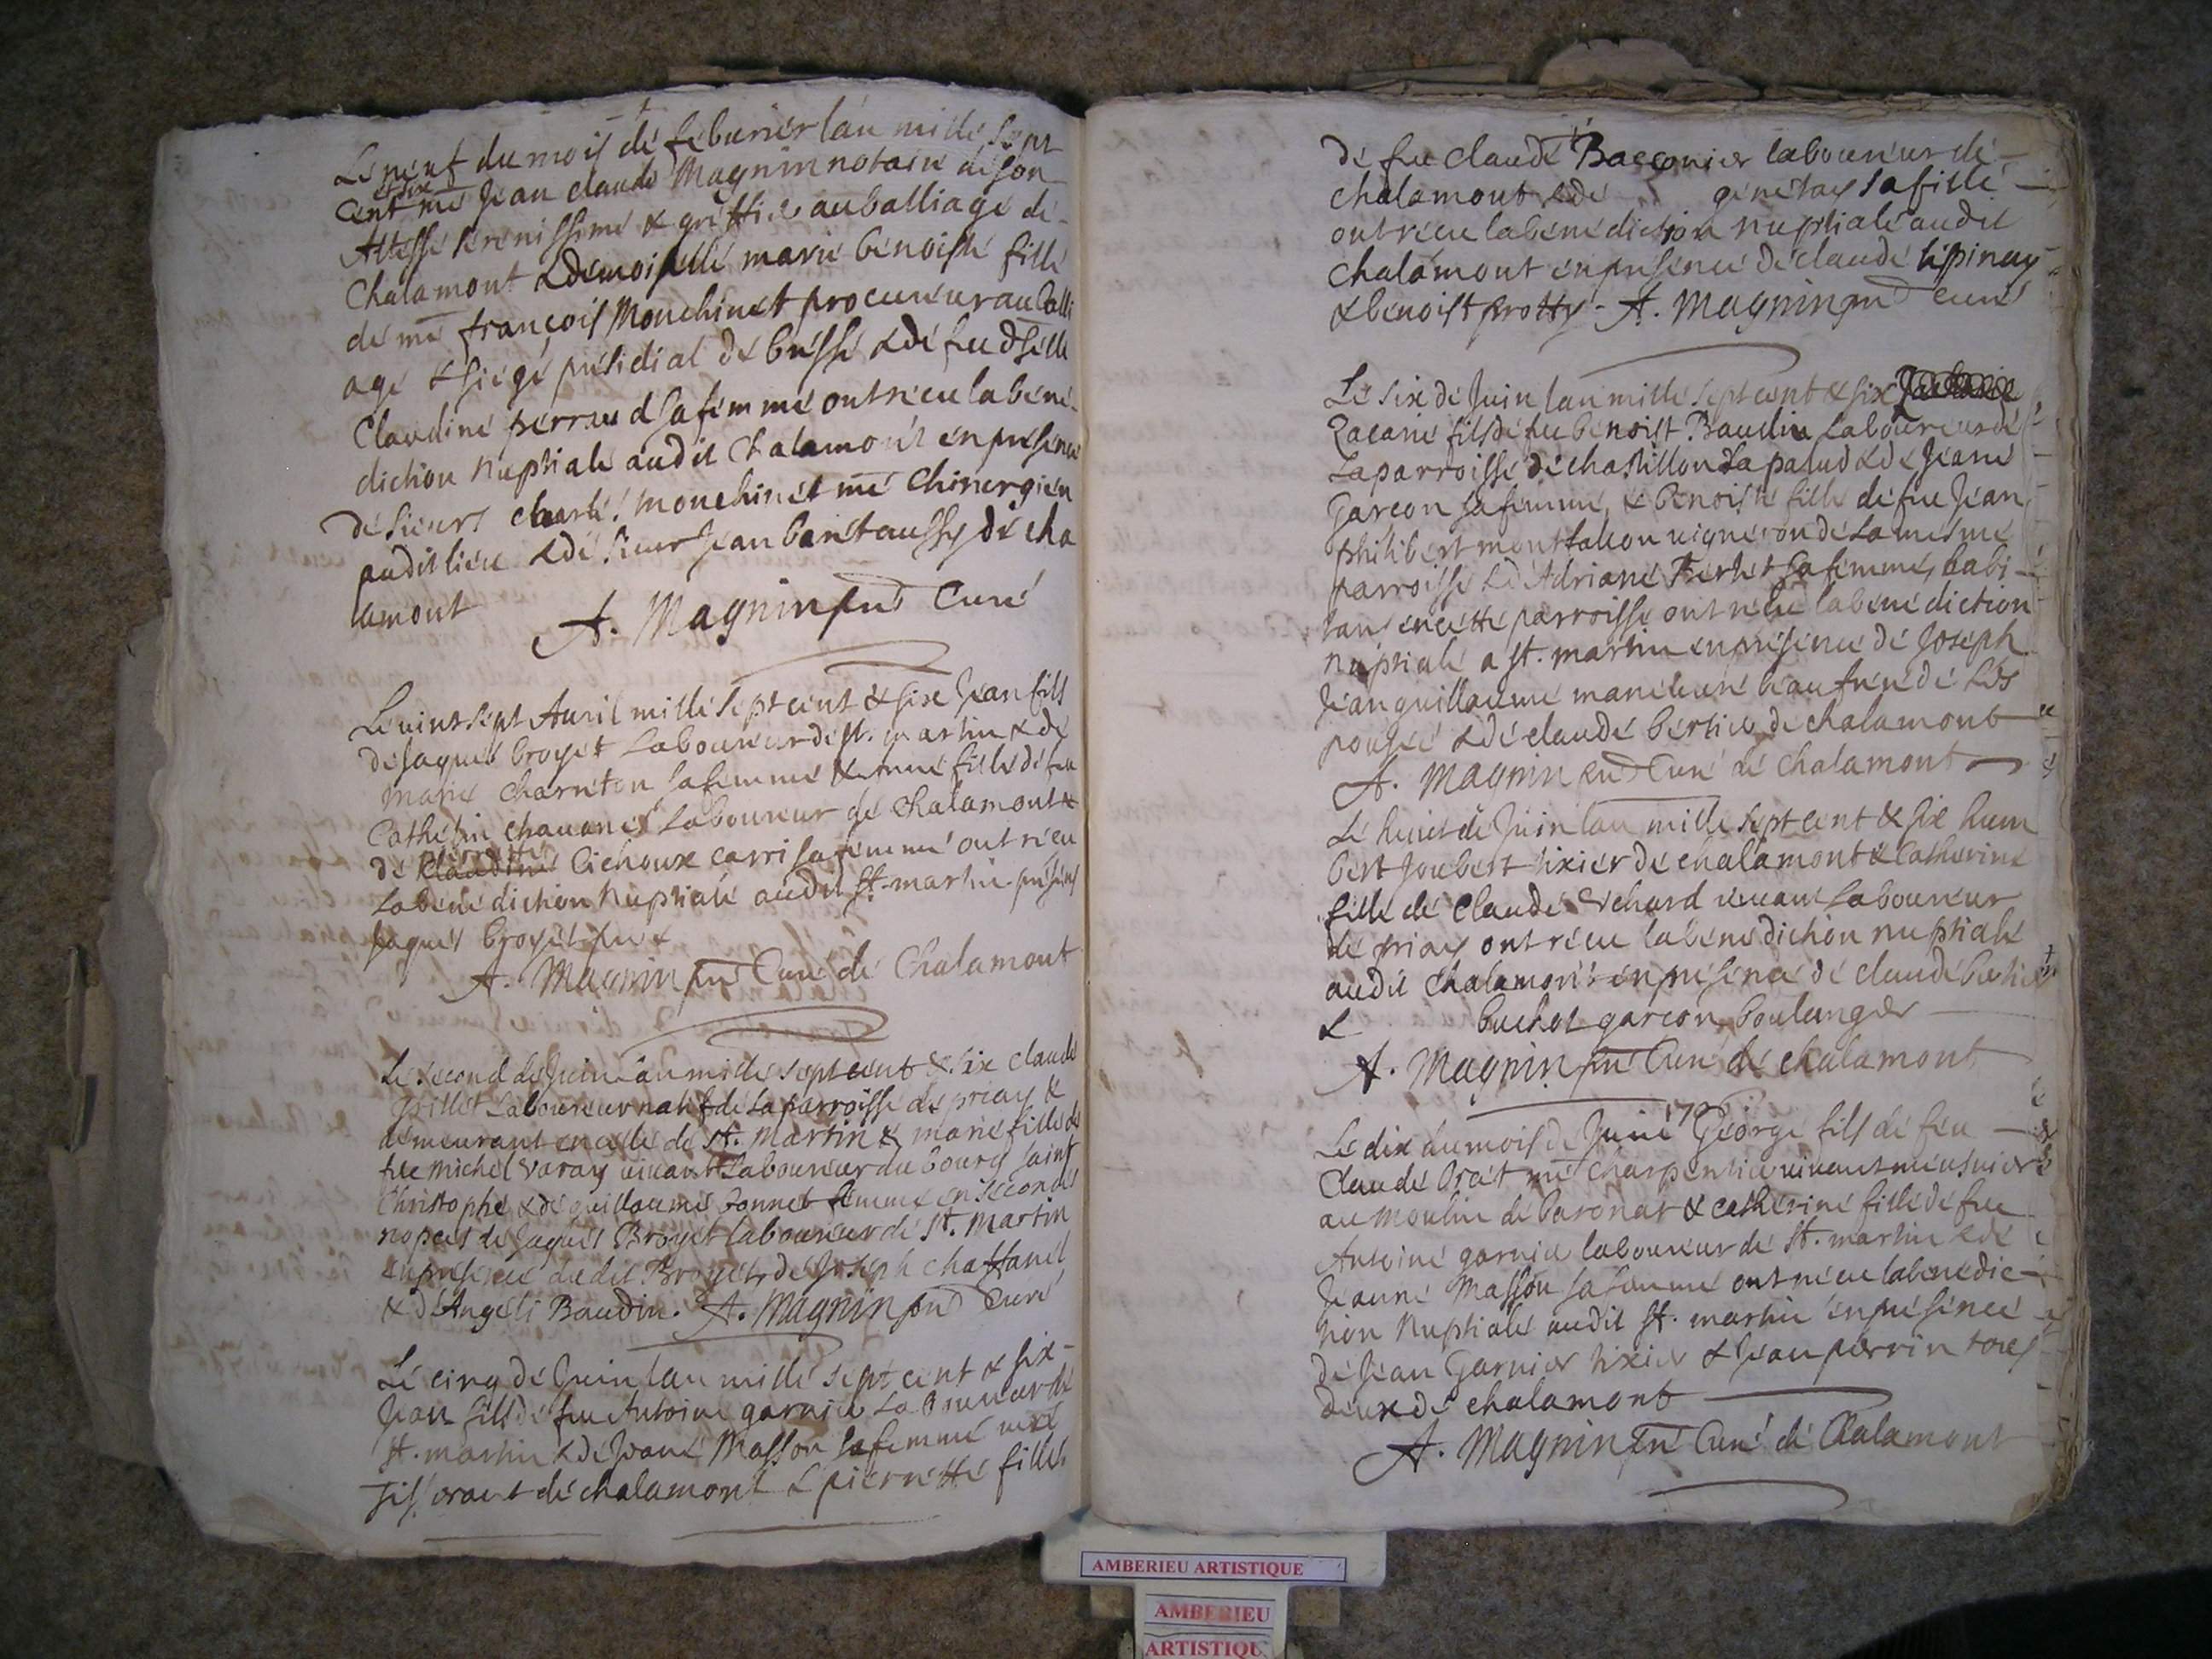 Le neuf du mois de feburier l'an mille sept
cent et six me Jean claude Magnin notaire de son
Altesse serenissime & greffier au balliage de
Chalamont & demoiselle marie benoiste fille
de me françois Monchinet procureur au balli
age & siege presidial de bresse & de feu dselle
Claudine perraud sa femme ont receu la bene-
diction nuptiale audit Chalamont en presence
de sieurs charles monchinet me Chirurgien
audit lieu & de sieur Jean aussy de cha
lamont A. Magnin pnt Curé
Le vint sept Auril mille sept cent & six Jean fils
de Jaques broyet Laboureur de st. martin & de
marie charneton sa femme & anne fille de feu
Cathelin chauanes Laboureur de Chalamont &
de Claudine Cichoux sa femme ont receu
La bene diction Nuptiale audit st. martin presens
Jaques broyet
A. Magnin pnt Curé de Chalamont
Le second de Juin l'an mille sept cent & six claude
grillet Laboureur natif de La parroisse de priay &
demeurant en celle de st. Martin & marie fille de
feu michel varay viuant Laboureur du bourg saint
Christophe & de guillaume bonnet femme en secondes
nopces de Jaques Broyet laboureur de st. Martin
en presence dudit Broyet, de Joseph chaffanel
& d'Angeli Baudin. A. Magnin pnt Curé
Le cinq de Juin l'an mille sept cent & six
Jean fils de feu Antoine garnier Laboureur de
st. martin & de Jeane Masson sa femme
Tisserant de chalamont & pierrette fille
de feu claude Bacconier laboureur de
chalamont & de genetay sa fille
ont receu la bene diction nuptiale audit
Chalamont en presence de claude lispinay
& benoist protty - A. Magnin pnt curé
Le six de Juin l'an mille sept cent & six
Zacarie fils de feu benoist Baudin Laboureur de
La parroisse de chastillon la palud & de Jeane
Garcon sa femme, & benoiste fille de feu Jean
philibert montfalcon vigneron de La mesme
parroisse & d'Adriane sa femme, habi-
tans en cette parroisse ont receu la bene diction
nuptiale a st. martin en presence de Joseph
Jean guillaume beau frere de Les
pousee & de claude bertier de chalamont
A. Magnin pnt Curé de Chalamont
Le huict de Juin l'an mille sept cent & six hum
bert Joubert tixier de chalamont & Catherine
fille de Claude viuant Laboureur
de priay ont receu la bene diction nuptiale
audit Chalamont en presence de claude bertier
& buchot garcon boulanger
A. Magnin pnt Curé de chalamont
Le dix du mois de Juin 1706 George fils de feu
Claude brat me charpentier viuant meusnier
au moulin de baronat & catherine fille de feu
Antoine garnier laboureur de st. martin & de
Jeanne Masson sa femme ont receu la benedic-
tion nuptiale audit st. martin en presence
de Jean Garnier tixier & Jean perrin tous
deux de chalamont
A. Magnin pnt Curé de Chalamont
AMBERIEU ARTISTIQUE
AMBERIEU
ARTISTIQU